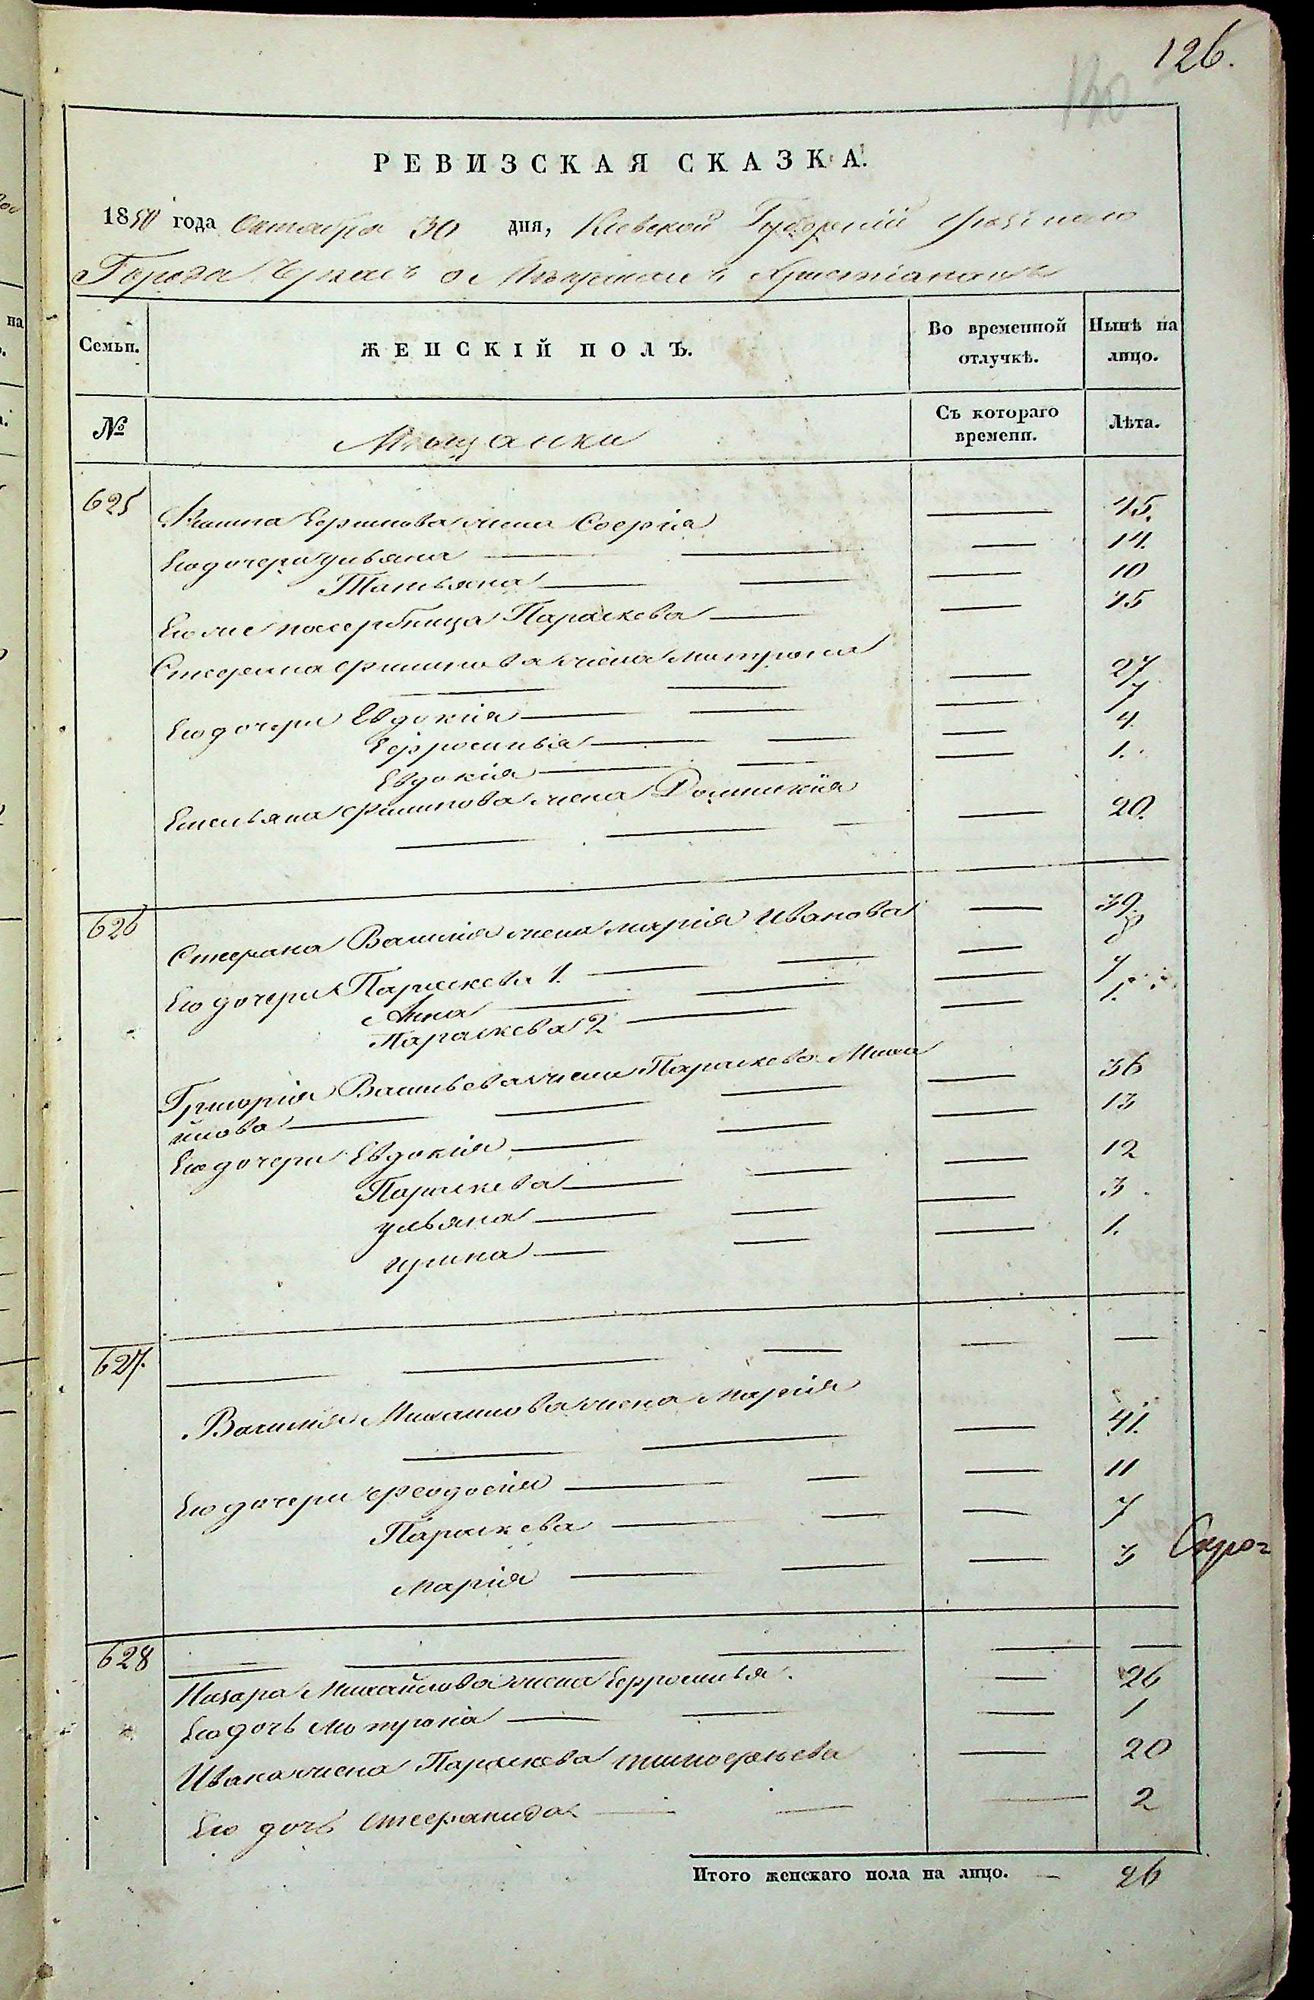 126.
130
РЕВИЗСКАЯ СКАЗКА.
1850 года Октября 30 дня, Кіевской Губерніи
Города о Мѣщанахъ Христіанахъ
Семьи. ЖЕНСКІЙ ПОЛЪ. Во временной отлучкѣ. Нынѣ на лицо.
№ Мѣщанки Съ котораго времени. Лѣта.
625 жена Софія — 45.
Его дочери Ульяна — 14.
Татьяна — 10
Его же Параскева — 15
Стефана Филипова жена Матрона — 27
Его дочери Евдокія — 7
Ефросинья — 4
Евдокія — 1.
Емельяна Филипова жена Домникія — 20.
626 Стефана Василія жена Марія Иванова — 39.
Его дочери Параскева 1. — 8
Анна — 7
Параскева 2 — 1.
Григорія Васильева жена Параскева Миха
йлова — 36
Его дочери Евдокія — 13
Параскева — 12
Ульяна — 3
Ирина — 1.
627. — —
Василія Михайлова жена Марія — 41.
Его дочери Феодосія — 11
Параскева — 7
Марія — 3
Скро=
628 — —
Назара Михайлова жена Ефросинья. — 26
Его дочь Мотрона — 1
Ивана жена Параскева Тимофеева — 20
Его дочь Стефанида — 2
Итого женскаго пола на лицо. — 26